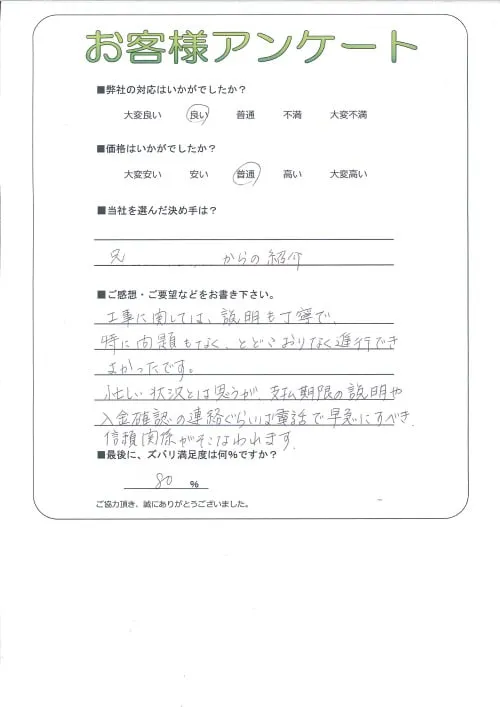 お客様アンケート
■弊社の対応はいかがでしたか？
大変良い 良い 普通 不満 大変不満
■価格はいかがでしたか？
大変安い 安い 普通 高い 大変高い
■当社を選んだ決め手は？
兄 からの紹介
■ご感想・ご要望などをお書き下さい。
工事に関しては、説明も丁寧で、
特に問題もなく、とどこおりなく進行でき
よかったです。
忙しい状況とは思うが、支払期限の説明や
入金確認の連絡ぐらいは電話で早急にすべき。
信頼関係がそこなわれます。
■最後に、ズバリ満足度は何％ですか？
80 %
ご協力頂き、誠にありがとうございました。